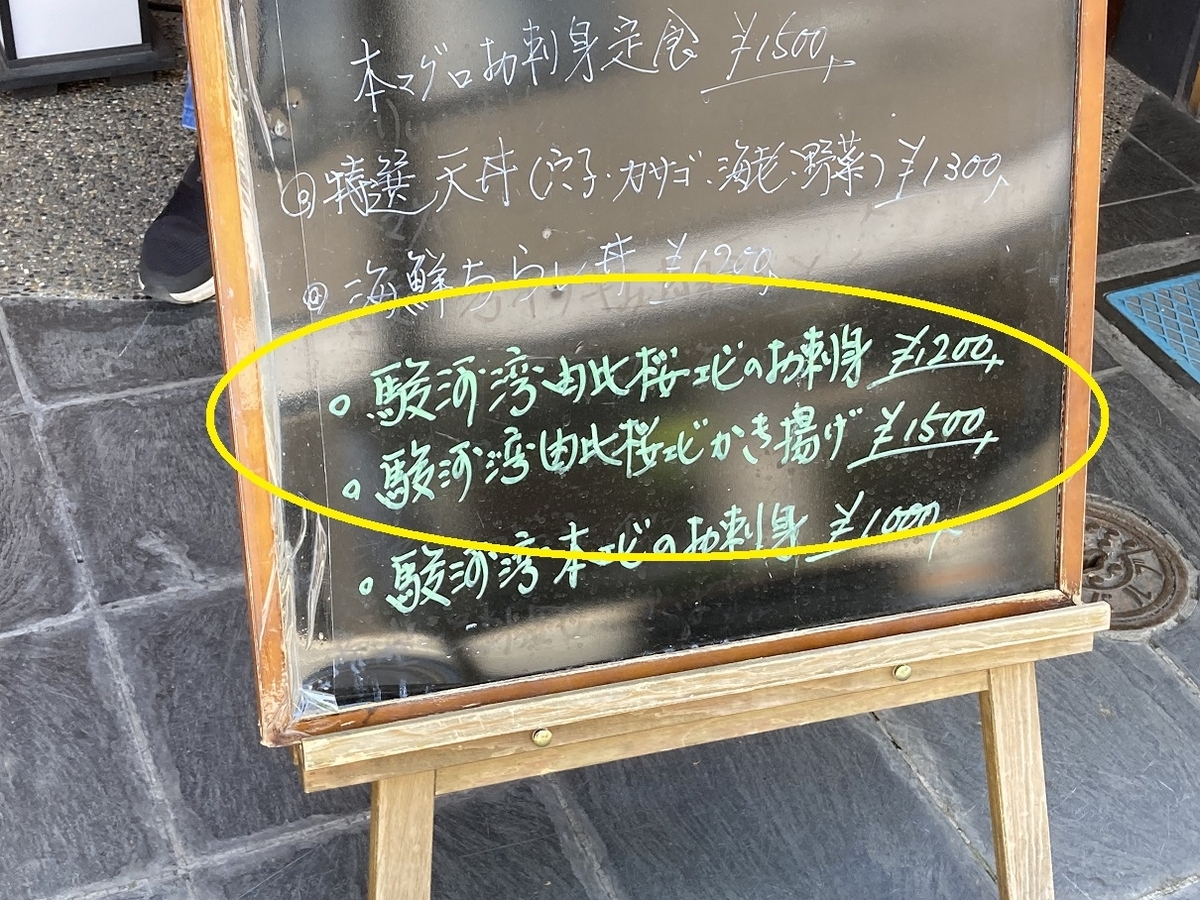 本マグロお刺身定食 ¥1500
Ⓑ特選天丼(穴子・カサゴ・海老・野菜) ¥1300
海鮮ちらし丼 ¥1200
○駿河湾由比桜エビのお刺身 ¥1200
○駿河湾由比桜エビかき揚げ ¥1500
○駿河湾本エビのお刺身 ¥1000